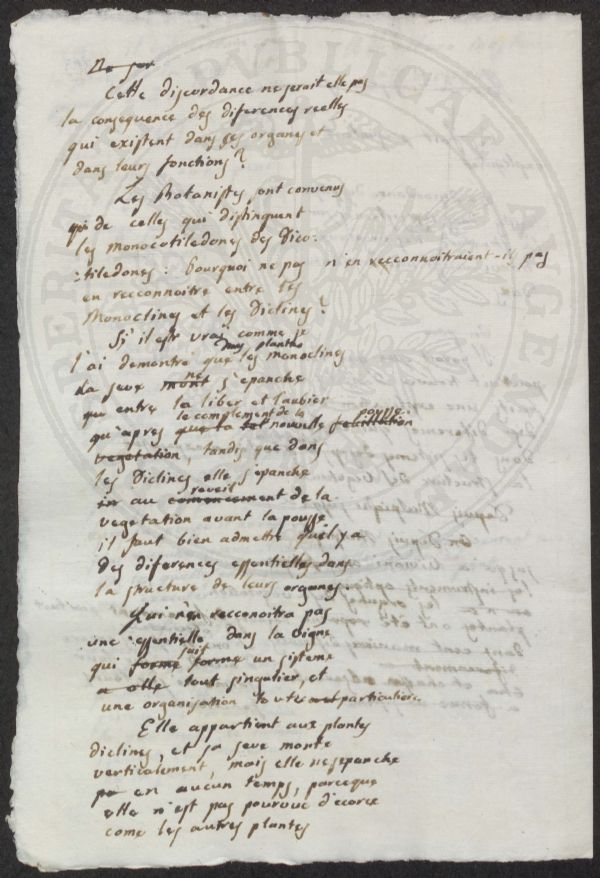 Cette discordance ne serait elle pas
la consequence des diferences reelles
qui existent dans ses organes et
dans leurs fonctions?
Les Botanistes sont convenus
de celles qui distinguent
les monocotiledones des Dico:
:tiledones: Pourquoi ne pas n'en recconnoitraient-ils pas
en recconnoitre entre les
Monoclines et les Diclines?
S'il est vrai comme je
l'ai demontré que les monoclines
mes plantes
La seve ne s'epanche
qu entre la liber et l'aubier
le complement de la
qu'apres nouvelle pousse
vegetation, tandis que dans
les Diclines elle s'epanche
reveil
in au commencement de la
vegetation avant la pousse
il faut bien admettre qu'il y a
des diferences essentielles dans
la structure de leurs organes.
Qui n'en recconoitra pas
une essentielle dans la vigne
qui forme suit forme un sisteme
a elle tout singulier, et
une organisation toute particuliere
Elle appartient aux plantes
diclines, et sa seve monte
verticalement, mais elle ne s'epanche
en aucun temps, parceque
elle n'est pas pourvue d'ecorce
come les autres plantes
PUBLICAE